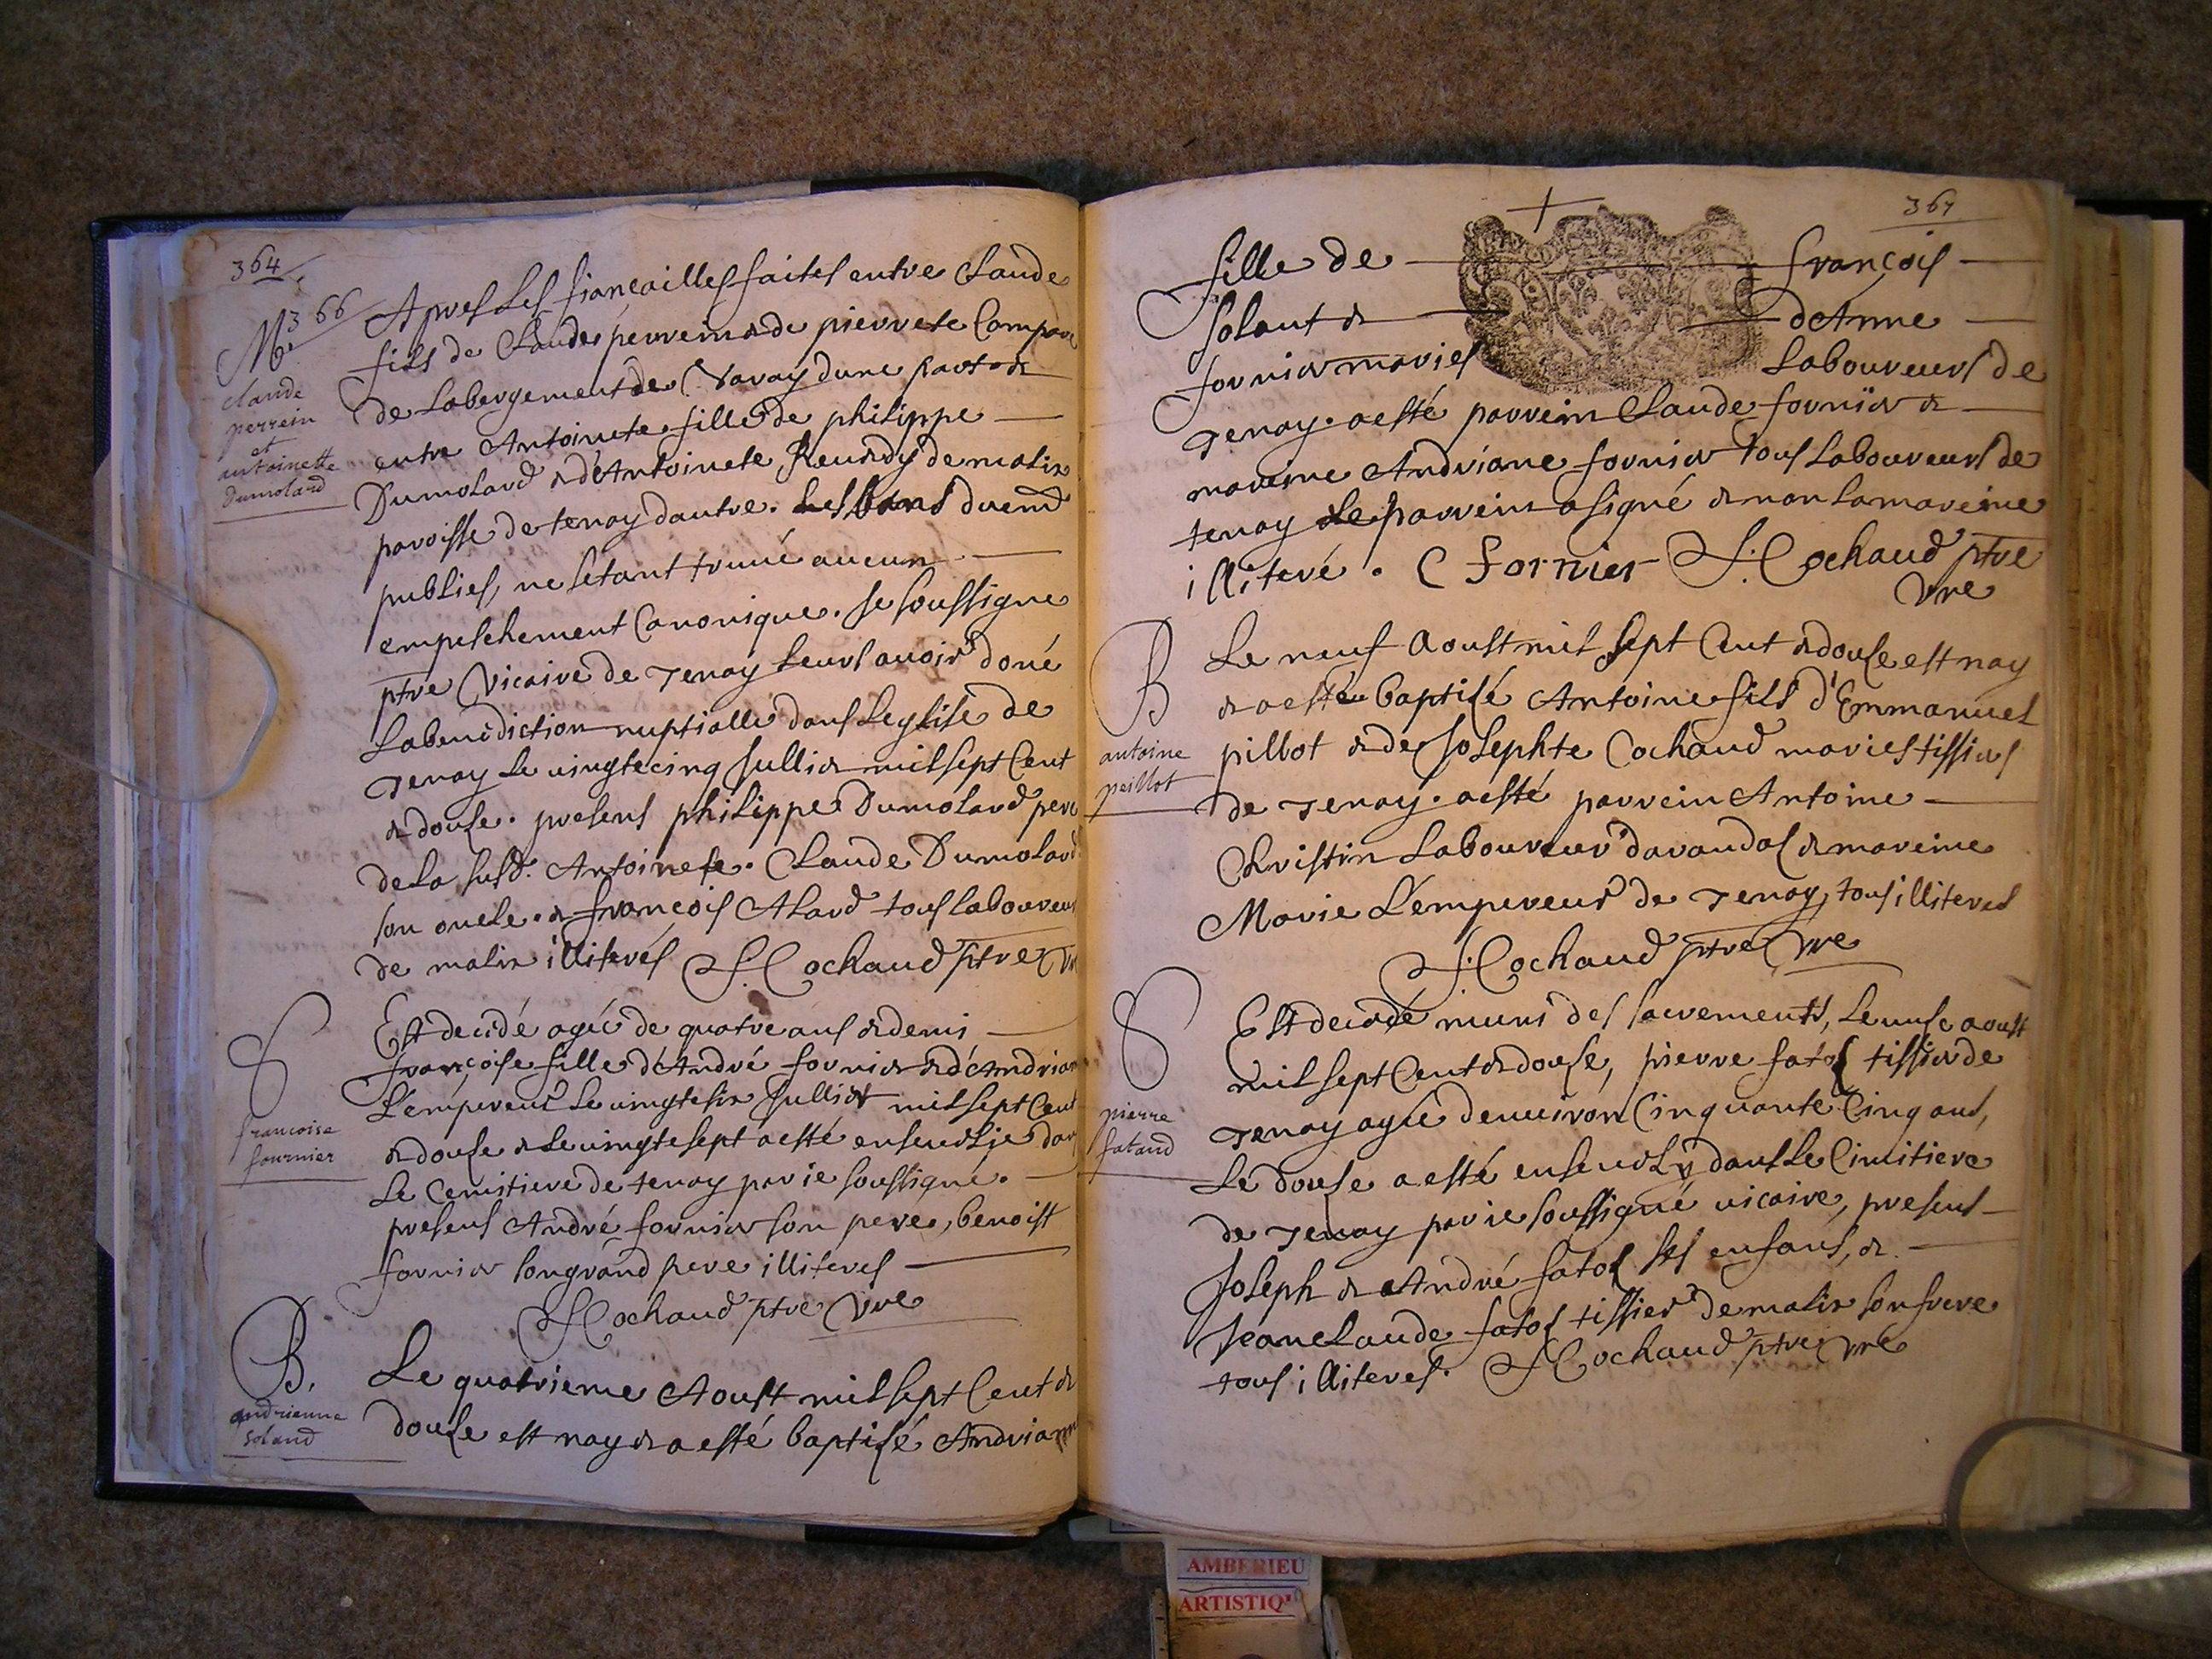 364
M. 366
claude
perrein
et
antoinette
Dumolard
Apres les fiancailles faites entre Claude
fils de Claude perrein & de pierrete Compare
de Labergement de Varay dune part &
entre Antoinete fille de philippe
Dumolard & d'Antoinete Reuidy de malix
paroisse de tenay dautre. Les bans duemt
publies, ne sétant trouué aucun
empeschement Canonique. Je soussigne
ptre Vicaire de Tenay leurs auoir doné
La benediction nuptialle dans Leglise de
Tenay Le vingtecinq Julliet mil sept Cent
& douse. presens philippe Dumolard pere
de La susd. Antoinete. Claude Dumolard
son oncle. & françois Alard tous laboureurs
de malix illiterés J. Cochaud ptre Vre
S
francoise
fournier
Est decidé agée de quatre ans & demis
françoise fille d'André fornier & d'Andriane
L'empereur Le vingtesix Julliet mil sept Cent
& douse & Le vingtesept a esté enseuelie dans
Le Cemitiere de tenay par ie soussigné.
presens André fornier son pere, benoist
fornier son grand pere illiteres
J Cochaud ptre Vre
B.
andrienne
soland
Le quatrieme Aoust mil sept Cent &
douse est nay & a esté baptisé Andrianne
367
fille de françois
Solant & d'Anne
fornier maries Laboureurs de
Tenay. a esté parrein Claude fornier &
mareine Andriane fornier tous Laboureurs de
tenay Le parrein a signé & non la mareine
illiteré. C fornier J. Cochaud ptre
Vre
B
antoine
peillot
Le neuf Aoust mil sept Cent & douse est nay
& a esté baptisé Antoine fils d'Emmanuel
pillot & de Josephte Cochaud maries tissiers
de Tenay. a esté parrein Antoine
Christin Laboureur davandas & mareine
Marie L'empereur de Tenay, tous illiteres
J. Cochaud ptre Vre
S
pierre
fatand
Est decidé muni des sacrements, Le unse aoust
mil sept Cent & douse, pierre fatos tissier de
Tenay agée denuiron Cinquante Cinq ans,
Le douse a esté enseuely dans Le Cimitiere
de Tenay par ie soussigné uicaire, presens
Joseph & André fatos ses enfans, &
Jean Claude fatos tissier de malix son frere
tous illiteres. J Cochaud ptre Vre
AMBERIEU
ARTISTIQ'